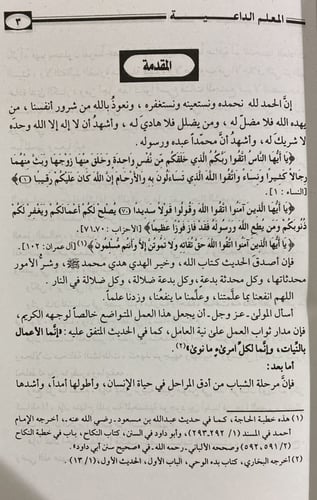 المعلم الداعية
٣
المقدمة
إنَّ الحمد لله نحمده ونستعينه ونستغفره ، ونعوذُ بالله من شرور أنفسنا ، من
يهده الله فلا مضلّ له ، ومن يضلل فلا هادي له ، وأشهدُ أن لا إله إلا الله وحدَه
لا شريك له ، وأشهدُ أنَّ محمَّداً عبده ورسوله .
﴿يَا أَيُّهَا النَّاسُ اتَّقُوا رَبَّكُمُ الَّذِي خَلَقَكُم مِّن نَّفْسٍ وَاحِدَةٍ وَخَلَقَ مِنْهَا زَوْجَهَا وَبَثَّ مِنْهُمَا
رِجَالًا كَثِيرًا وَنِسَاءً وَاتَّقُوا اللَّهَ الَّذِي تَسَاءَلُونَ بِهِ وَالأَرْحَامَ إِنَّ اللَّهَ كَانَ عَلَيْكُمْ رَقِيبًا ﴿١﴾﴾
[النساء : ١].
﴿يَا أَيُّهَا الَّذِينَ آمَنُوا اتَّقُوا اللَّهَ وَقُولُوا قَوْلًا سَدِيدًا ﴿٧٠﴾ يُصْلِحْ لَكُمْ أَعْمَالَكُمْ وَيَغْفِرْ لَكُمْ
ذُنُوبَكُمْ وَمَن يُطِعِ اللَّهَ وَرَسُولَهُ فَقَدْ فَازَ فَوْزًا عَظِيمًا﴾ [الأحزاب : ٧٠،٧١].
﴿يَا أَيُّهَا الَّذِينَ آمَنُوا اتَّقُوا اللَّهَ حَقَّ تُقَاتِهِ وَلا تَمُوتُنَّ إِلاَّ وَأَنتُم مُّسْلِمُونَ﴾(١) [آل عمران : ١٠٢].
فإن أصدقَ الحديث كتاب الله ، وخير الهدي هدي محمد ﷺ ، وشرُّ الأمور
محدثاتها ، وكل محدثة بدعة، وكل بدعة ضلالة ، وكل ضلالة في النار .
اللهم انفعنا بما علَّمتنا ، وعلَّمنا ما ينفعنا، وزدنا علماً.
أسألُ المولىٰ ـ عز وجل ـ أن يجعل هذا العمل المتواضع خالصاً لوجهه الكريم،
فإن مدار ثواب العمل علىٰ نية العامل ، كما في الحديث المتفق عليه : «إنما الأعمال
بالنِّيات ، وإنَّما لكلِّ امرئٍ ما نوىٰ»(٢).
أما بعد :
فإن مرحلة الشباب من أدق المراحل في حياة الإنسان ، وأطولها أمداً ، وأشدها
(١) هذه خطبة الحاجة، كما في حديث عبدالله بن مسعود ـ رضي الله عنه ـ، أخرجه الإمام
أحمد في المسند (١ /٢٩٢-٢٩٣) ، وأبو داود في السنن، كتاب النكاح، باب في خطبة النكاح
(٢/ ٥٩١، ٥٩٢) وصححه الألباني ـ رحمه الله ـ في «صحيح سنن أبي داود».
(٢) أخرجه البخاري، كتاب بدء الوحي، الباب الأول، الحديث الأول، (١ /١٣) .